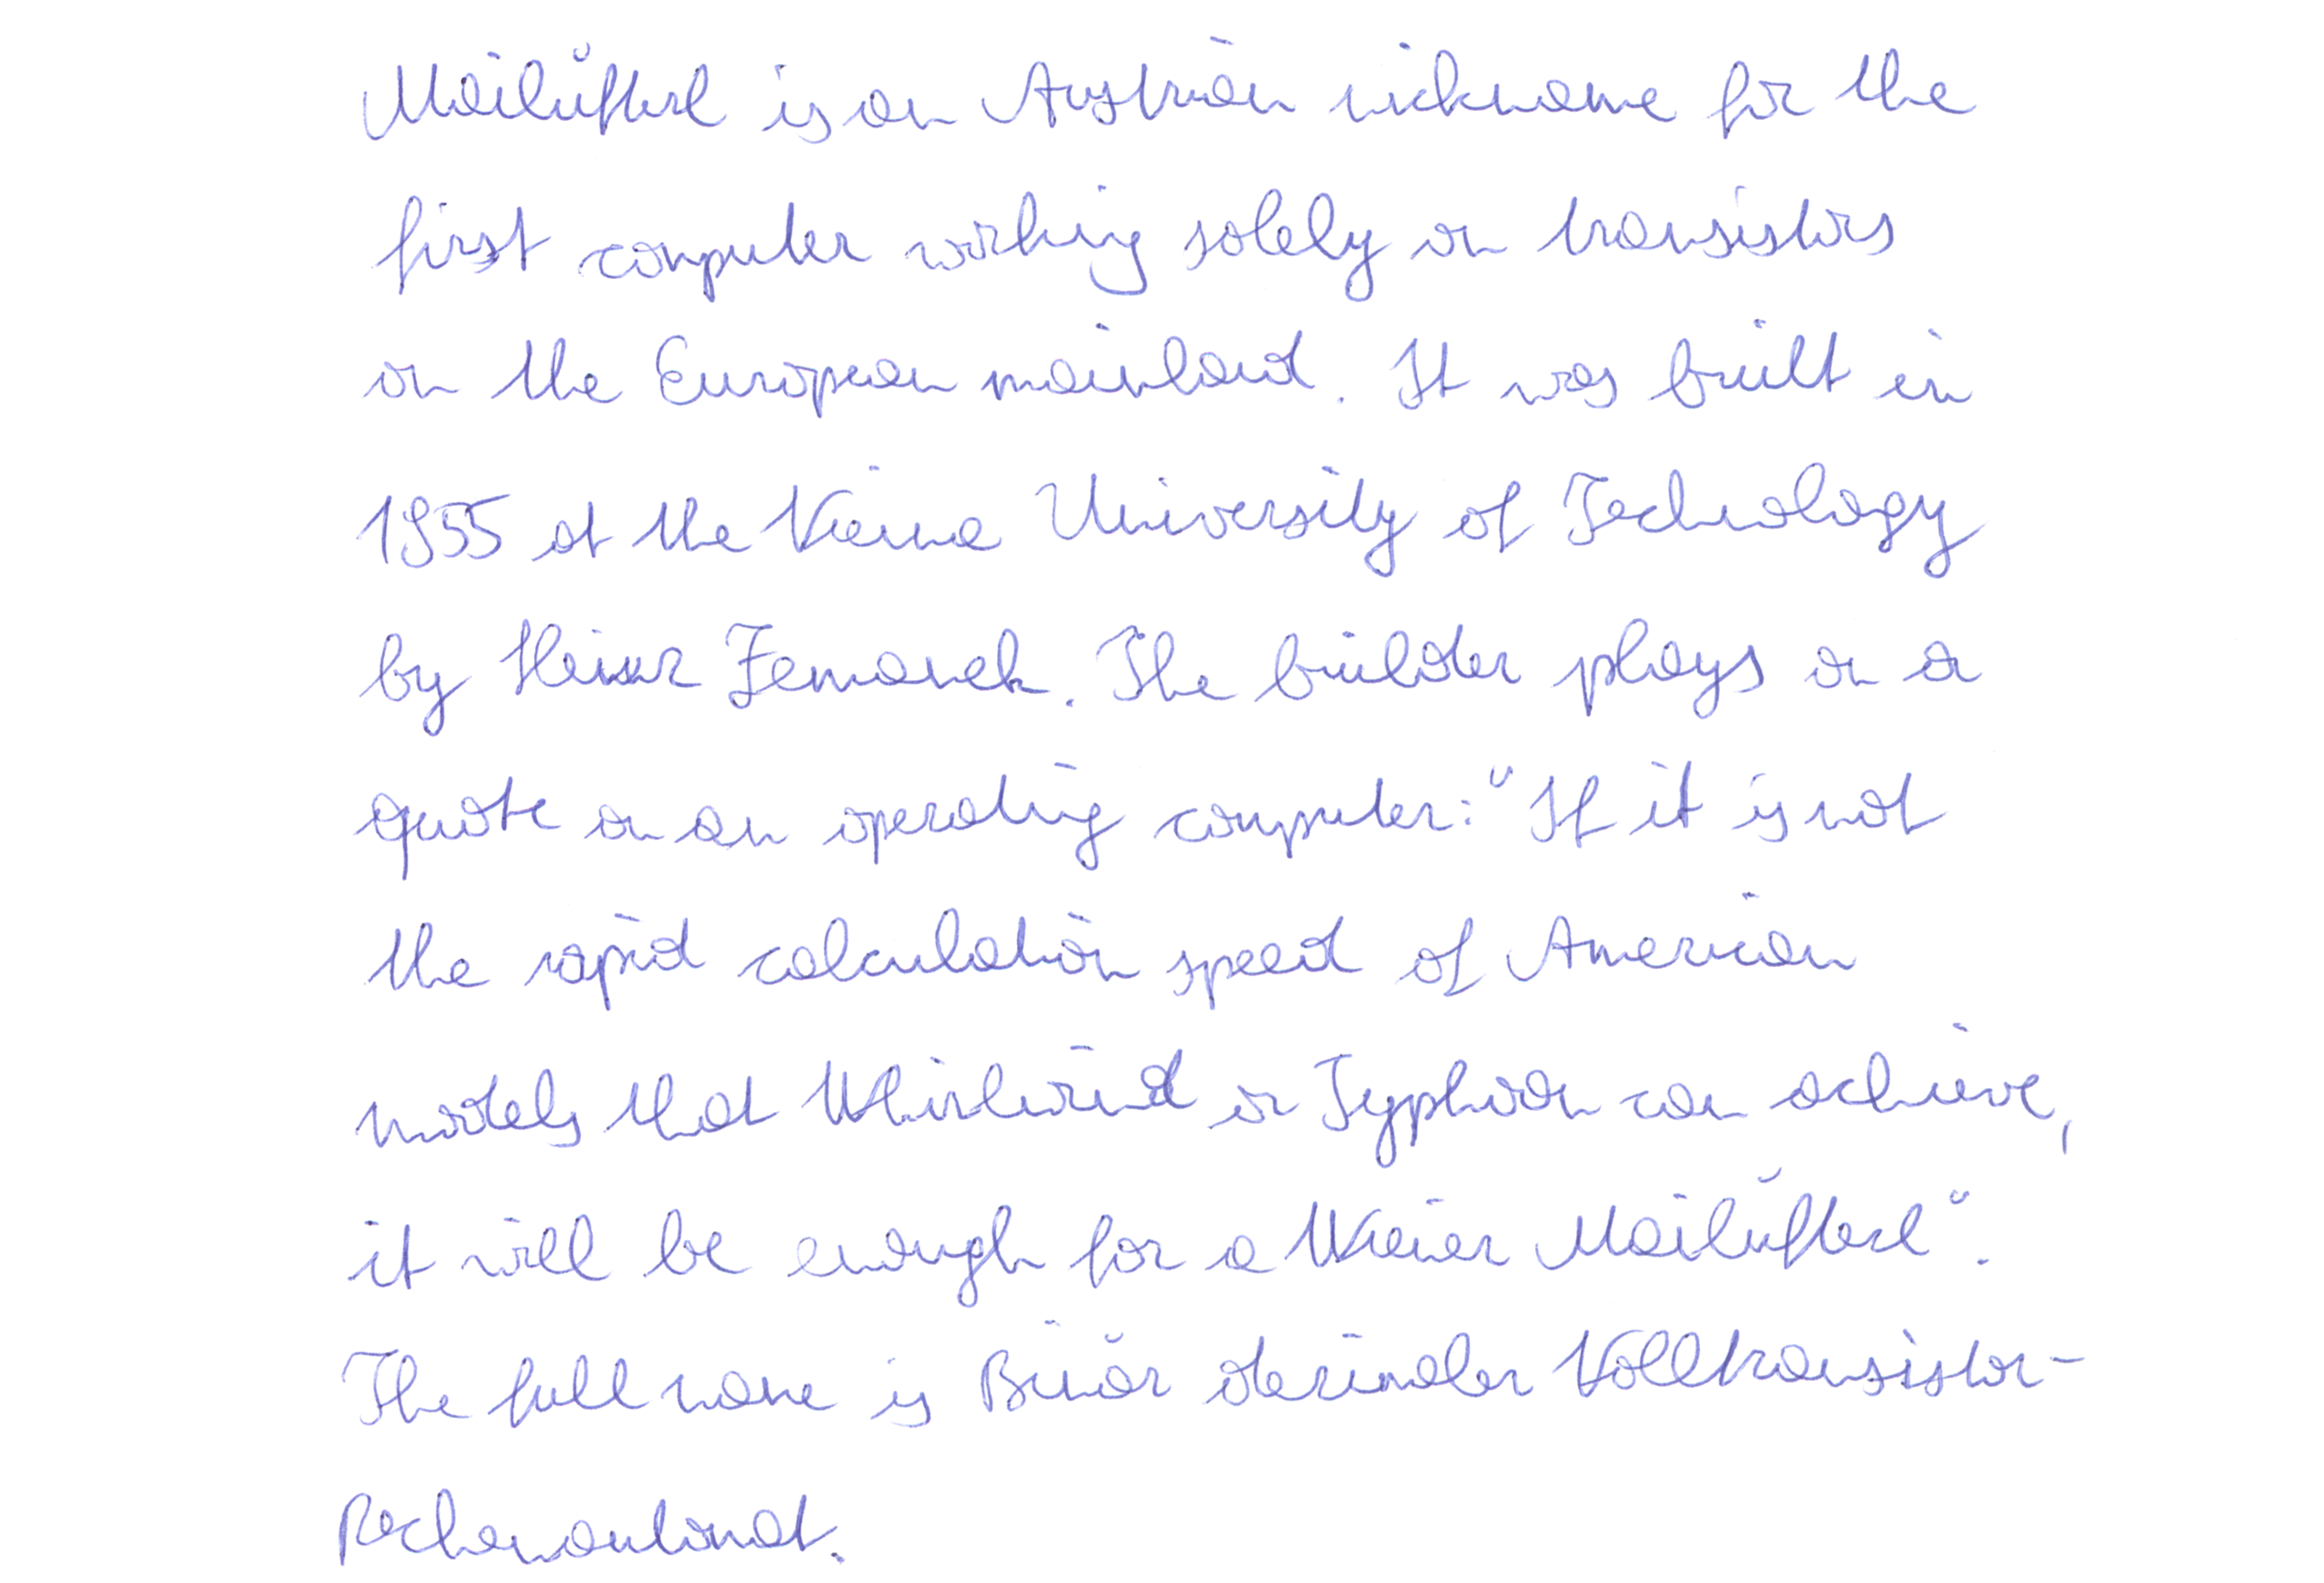 Mailüfterl is an Austrian nickname for the
first computer working solely on transistors
on the European mainland. It was built in
1955 at the Vienna University of Technology
by Heinz Zemanek. The builder plays on a
quote on an operating computer: "If it is not
the rapid calculation speed of American
models that Whirlwind or Typhoon can achieve,
it will be enough for a Wiener Mailüfterl".
The full name is Binär dezimaler Volltransistor-
Rechenautomat.